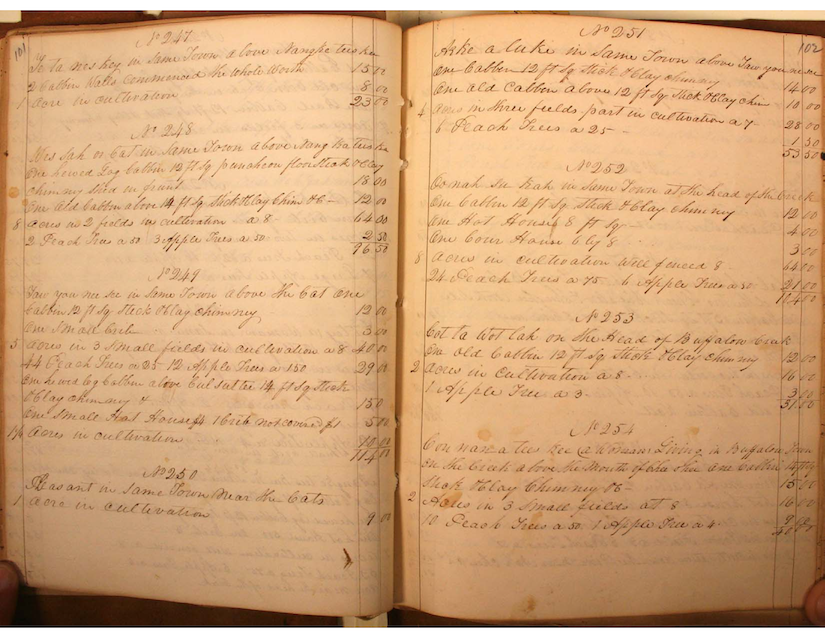 101
No 247
in Same Town above
2 Cabbin Walls Commenced the whole Worth 15 00
1 Acre in cultivation 8 00
23 00
No 248
or Cat in Same Town above
One hewed Log Cabbin 12 ft Sq puncheon floor Stick & Clay
chimney Shed in front 18 00
One old Cabbin above 14 ft Sq Stick & Clay Chim &c 12 00
8 Acres in 2 fields in cultivation a 8 64 00
2 Peach Trees a 50 3 Apple Trees a 50 2 50
96 50
No 249
Taw you nee see in Same Town above the Cat One
Cabbin 12 ft Sq Stick & Clay chimney 12 00
One Small Crib 3 00
5 Acres in 3 Small fields in cultivation a 8 40 00
44 Peach Trees a 25 12 Apple Trees a 150 29 00
One hewed Log Cabbin above 14 ft Sq Stick
& Clay chimney & 15 0
One Small Hot House 1 Crib not covered 5 00
Acres in cultivation 10 00
114 00
No 250
Pheasant in Same Town Near the Cats
1 Acre in cultivation 9 00
102
No 251
Arke a luke in Same Town above Taw you ne se
One Cabbin 12 ft Sq Stick & Clay chimney 14 00
One Old Cabbin above 12 ft Sq Stick & Clay Chim 10 00
4 Acres in three fields part in cultivation a 7 28 00
6 Peach Trees a 25 1 50
53 50
No 252
Oo nah in Same Town at the head of the Creek
One Cabbin 12 ft Sq Stick & Clay chimney 12 00
One Hot House 8 ft Sq 4 00
One Corn House 6 by 8 3 00
8 Acres in cultivation Well fenced 8 64 00
24 Peach Trees a 75 6 Apple Trees a 50 21 00
104 00
No 253
Cot ta Wot lah on the Head of Buffalow Creek
One old Cabbin 12 ft Sq Stick & Clay chimney 12 00
2 Acres in cultivation a 8 16 00
1 Apple Tree a 3 3 00
31 00
No 254
Con nan a tees kee (a Woman) Living in Buffalow Town
On the Creek above the Mouth of One Cabbin 14 ft Sq
Stick & Clay Chimney &c 15 00
2 Acres in 3 Small fields at 8 16 00
10 Peach Trees a 50 1 Apple Tree a 4 9 00
40 00